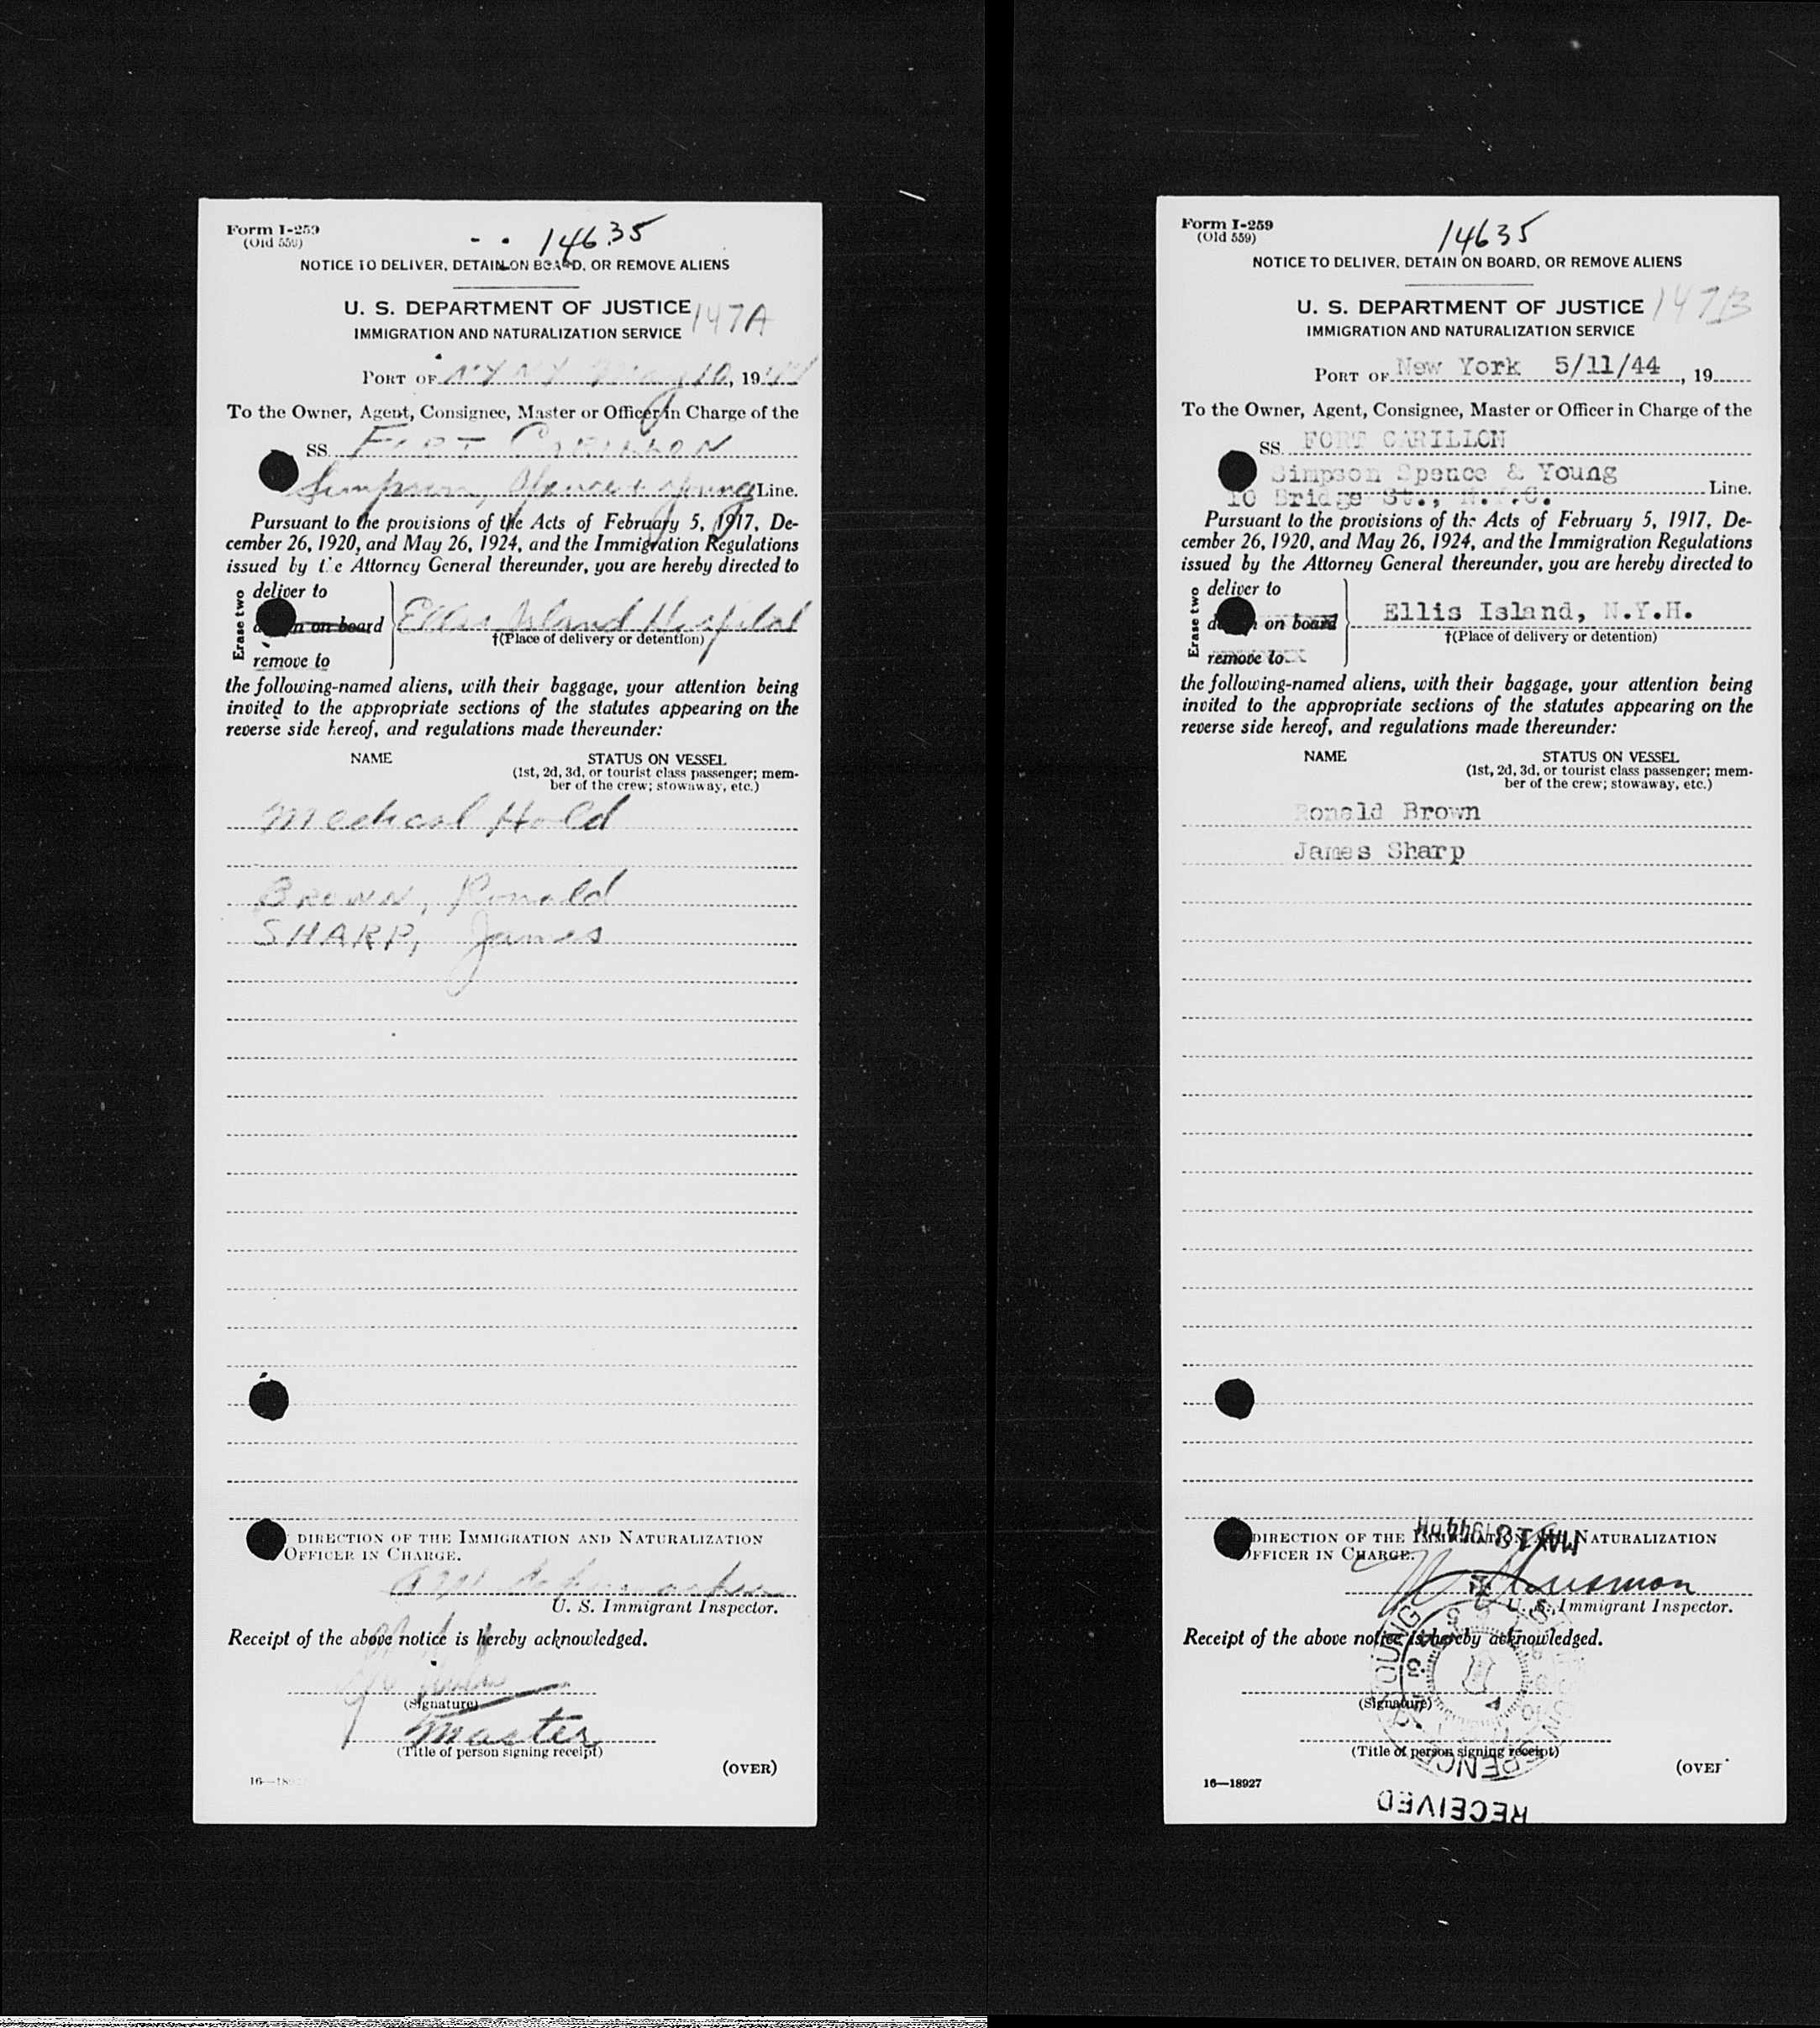 Form I-259
(Old 559)
14635
NOTICE TO DELIVER, DETAIN ON BOARD, OR REMOVE ALIENS
U. S. DEPARTMENT OF JUSTICE
147A
IMMIGRATION AND NATURALIZATION SERVICE
PORT OF NY NY May 10, 1944
To the Owner, Agent, Consignee, Master or Officer in Charge of the
SS. FORT CARILLON
Simpson, Spence & Young Line.
Pursuant to the provisions of the Acts of February 5, 1917, De-
cember 26, 1920, and May 26, 1924, and the Immigration Regulations
issued by the Attorney General thereunder, you are hereby directed to
Erase two
deliver to
on board
remove to
Ellis Island Hospital
†(Place of delivery or detention)
the following-named aliens, with their baggage, your attention being
invited to the appropriate sections of the statutes appearing on the
reverse side hereof, and regulations made thereunder:
NAME
STATUS ON VESSEL
(1st, 2d, 3d, or tourist class passenger; mem-
ber of the crew; stowaway, etc.)
Medical Hold
BROWN, Ronald
SHARP, James
DIRECTION OF THE IMMIGRATION AND NATURALIZATION
OFFICER IN CHARGE.
U. S. Immigrant Inspector.
Receipt of the above notice is hereby acknowledged.
(Signature)
Master
(Title of person signing receipt)
(OVER)
Form I-259
(Old 559)
14635
NOTICE TO DELIVER, DETAIN ON BOARD, OR REMOVE ALIENS
U. S. DEPARTMENT OF JUSTICE
147B
IMMIGRATION AND NATURALIZATION SERVICE
PORT OF New York 5/11/44, 19
To the Owner, Agent, Consignee, Master or Officer in Charge of the
SS. FORT CARILLON
Simpson Spence & Young
10 Bridge St., N.Y.C. Line.
Pursuant to the provisions of the Acts of February 5, 1917, De-
cember 26, 1920, and May 26, 1924, and the Immigration Regulations
issued by the Attorney General thereunder, you are hereby directed to
Erase two
deliver to
on board
remove to
Ellis Island, N.Y.H.
†(Place of delivery or detention)
the following-named aliens, with their baggage, your attention being
invited to the appropriate sections of the statutes appearing on the
reverse side hereof, and regulations made thereunder:
NAME
STATUS ON VESSEL
(1st, 2d, 3d, or tourist class passenger; mem-
ber of the crew; stowaway, etc.)
Ronald Brown
James Sharp
DIRECTION OF THE IMMIGRATION AND NATURALIZATION
OFFICER IN CHARGE.
U. S. Immigrant Inspector.
Receipt of the above notice is hereby acknowledged.
(Signature)
(Title of person signing receipt)
(OVER
16—18927
RECEIVED